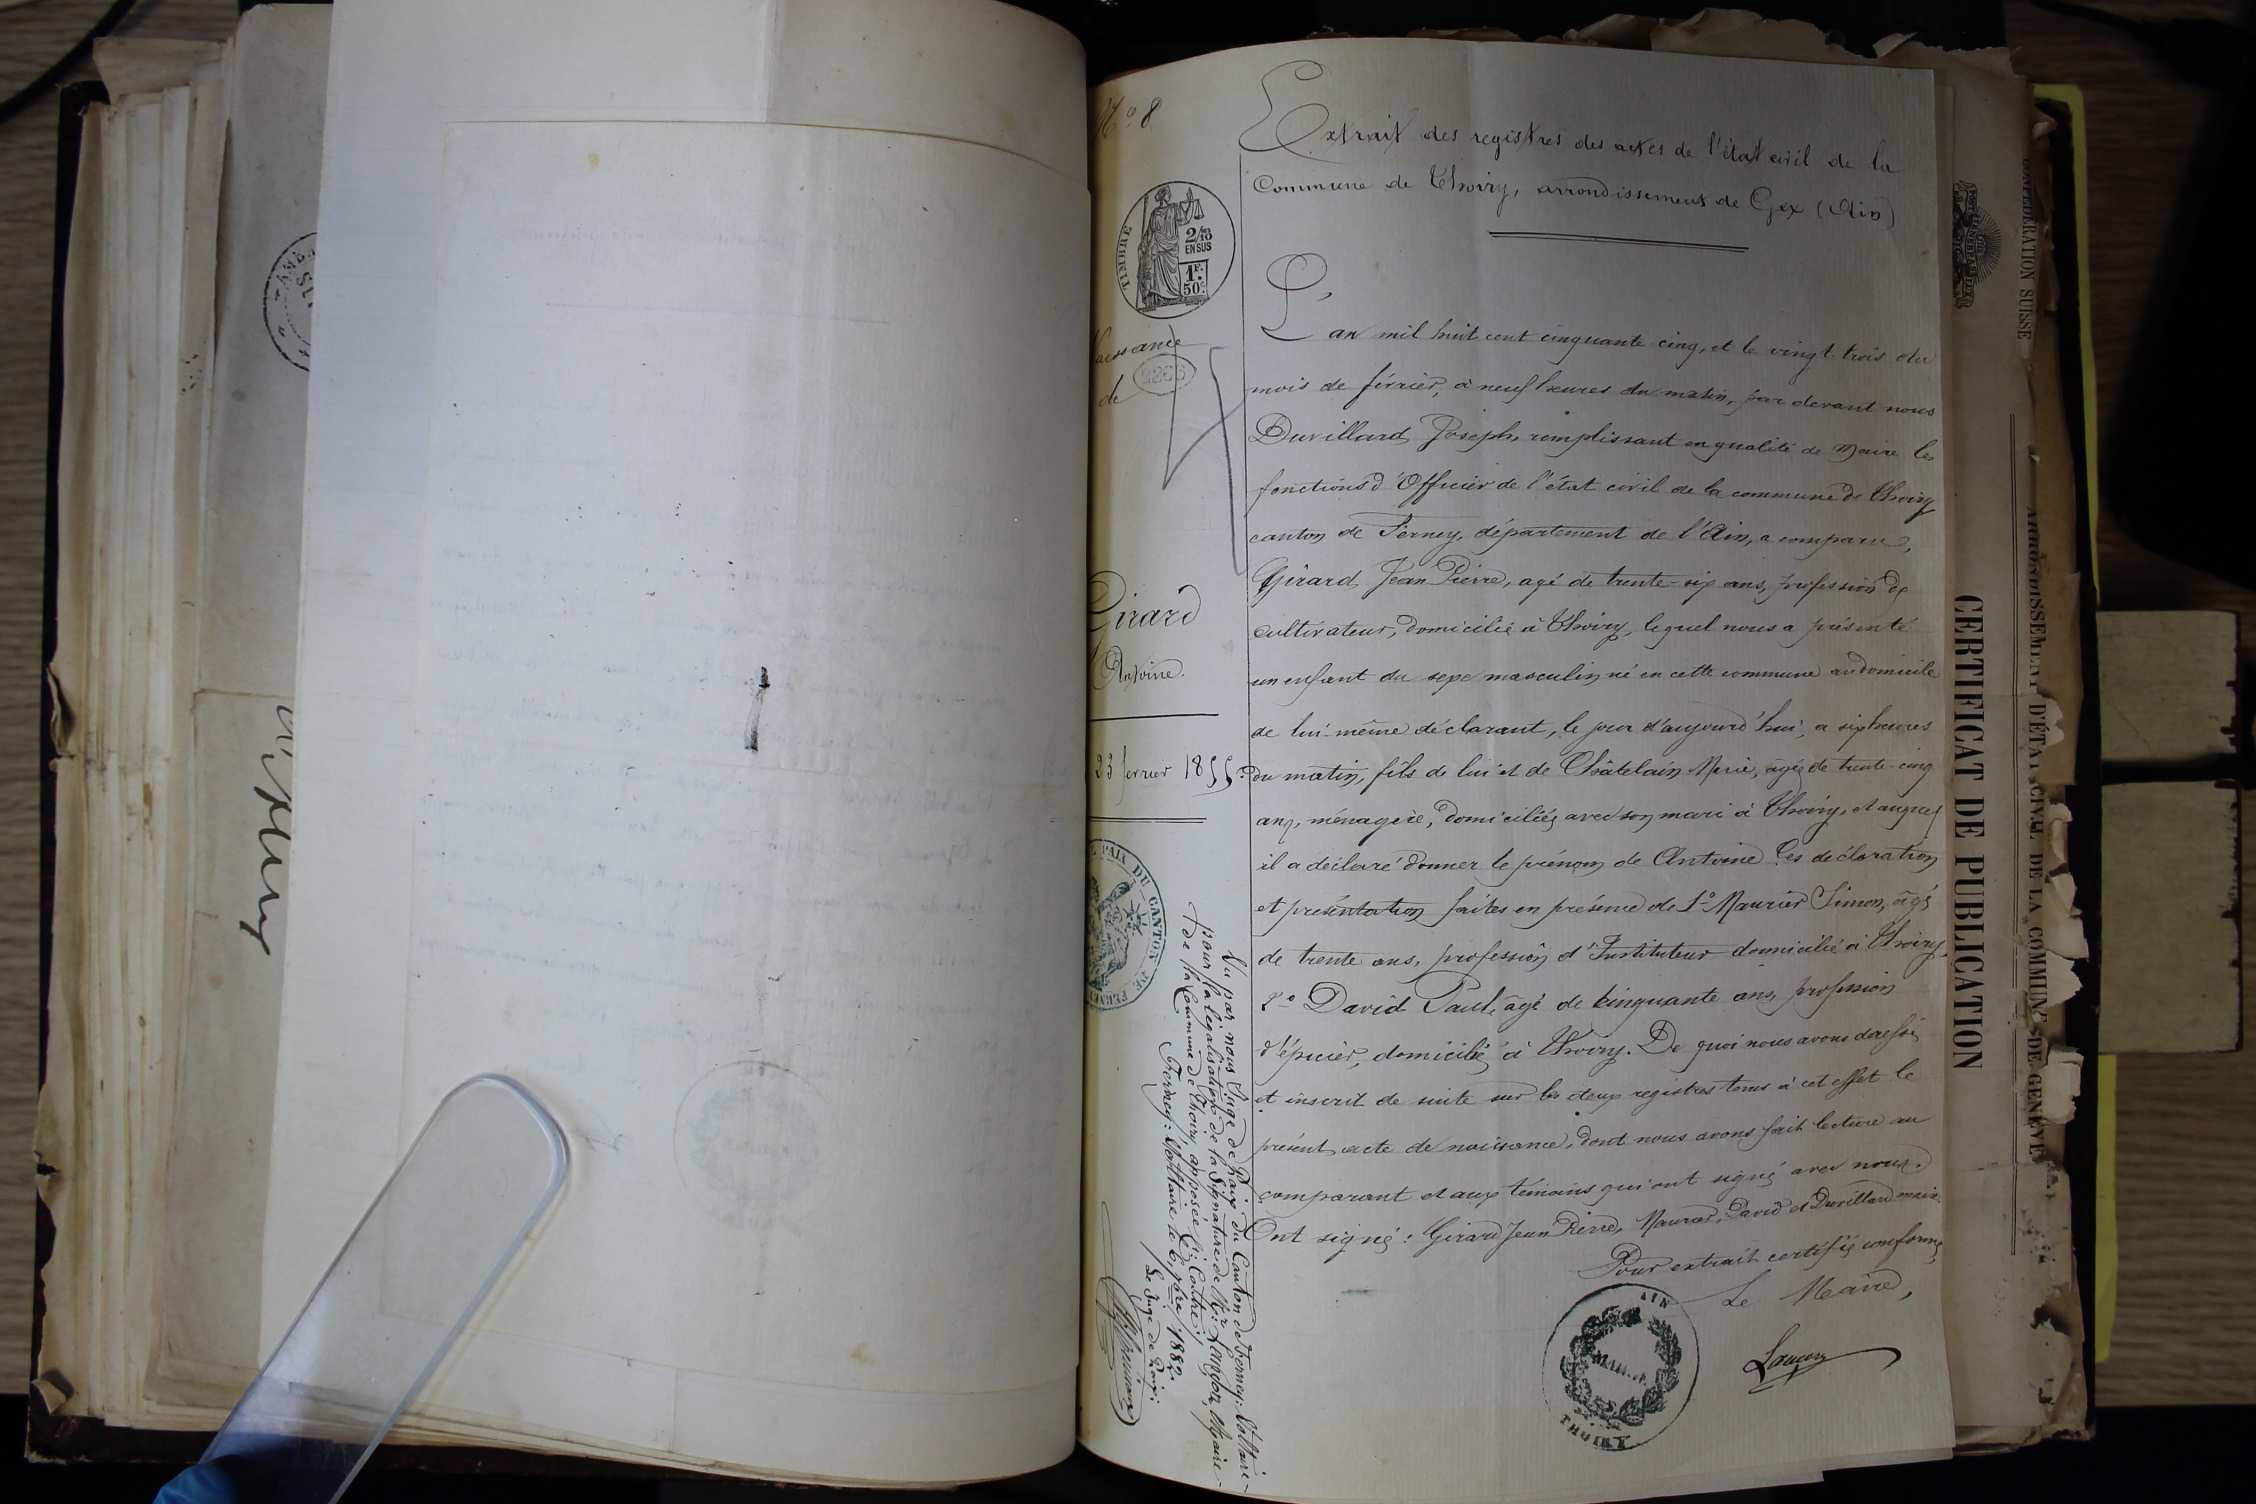 N° 8
Extrait des registres des actes de l'état civil de la
Commune de Thoiry, arrondissement de Gex (Ain)
TIMBRE
2/10
EN SUS
1F.
50c.
Naissance
de
2286
Girard
Antoine.
23 fevrier 1855.
L'
an mil huit cent cinquante cinq, et le vingt-trois du
mois de février, à neuf heures du matin, par devant nous
Duvillard Joseph, remplissant en qualité de Maire les
fonctions d'Officier de l'état civil de la commune de Thoiry
canton de Ferney, département de l'Ain, a comparu,
Girard Jean Pierre, agé de trente-six ans, profession de
cultivateur, domicilié à Thoiry, lequel nous a présenté
un enfant du sexe masculin né en cette commune au domicile
de lui-même déclarant, le jour d'aujourd'hui, a six heures
du matin, fils de lui et de Châtelain Marie, agée de trente-cinq
ans, ménagère, domiciliée avec son mari à Thoiry, et auquel
il a déclaré donner le prénom de Antoine. Les déclaration
et présentation faites en présence de 1° Maurier Simon, âgé
de trente ans, profession d'Instituteur domicilié à Thoiry,
2° David Paul, âgé de cinquante ans, profession
d'épicier, domicilié à Thoiry. De quoi nous avons dressé
et inscrit de suite sur les deux registres tenus à cet effet le
présent acte de naissance, dont nous avons fait lecture au
comparant et aux témoins qui ont signé avec nous.
Ont signé: Girard Jean Pierre, Maurier, David et Duvillard maire.
Pour extrait certifié conforme
Le Maire,
AIN
MAIRIE
THOIRY
PAIX DU CANTON DE FERNEY
Vu par nous Juge de Paix du Canton de Ferney-Voltaire
pour la légalisation de la Signature de Mr. Maire
de la Commune de Thoiry, apposée Ci-Contre
Ferney-Voltaire le 6, 1882.
Le Juge de Paix:
CONFÉDÉRATION SUISSE
ARRONDISSEMENT D'ÉTAT CIVIL DE LA COMMUNE DE GENÈVE
CERTIFICAT DE PUBLICATION